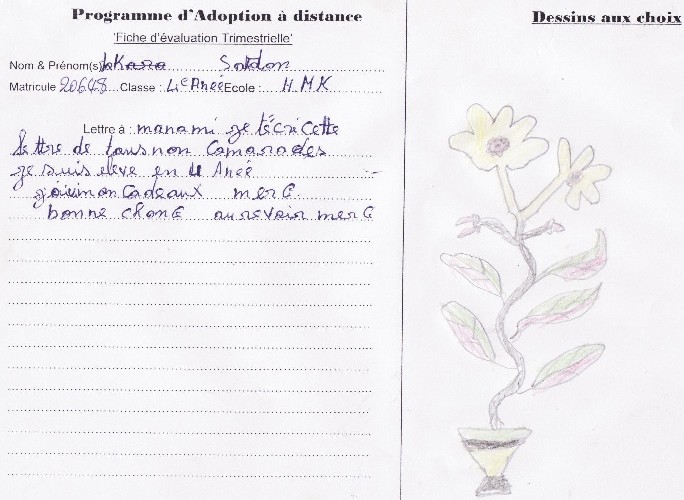 Programme d'Adoption à distance
'Fiche d'évaluation Trimestrielle'
Nom & Prénom(s) Kara Saïdon
Matricule 20648 Classe : 4e Anéé Ecole : HMK
Lettre à : manami je técri Cette
lettre de tousnon Camarades
je suis eleve en 4 Anéé
mon Cadeaux merC
bonne chanC aurevoir merC
Dessins aux choix